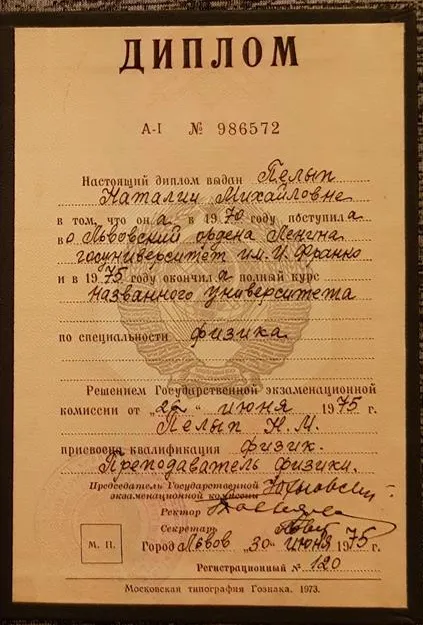 ДИПЛОМ
А-I № 986572
Настоящий диплом выдан Пелып
Наталии Михайловне
в том, что она в 1970 году поступила
во Львовский ордена Ленина
госуниверситет им. И. Франко
и в 1975 году окончила полный курс
названного университета
по специальности физика
Решением Государственной экзаменационной
комиссии от „26“ июня 1975 г.
Пелып Н. М.
присвоена квалификация физик.
Преподаватель физики.
Председатель Государственной
экзаменационной комиссии
Ректор
Секретарь
М. П.
Город Львов „30“ июня 1975 г.
Регистрационный № 120
Московская типография Гознака. 1973.